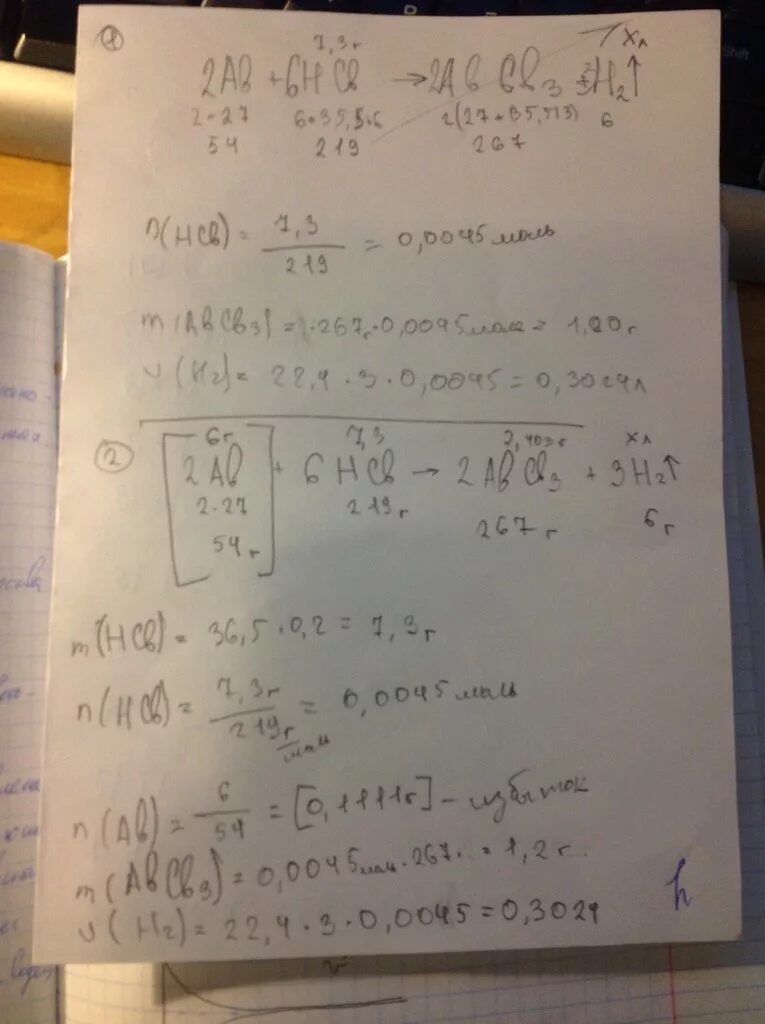 1
7,3 г xл
2Al + 6HCl → 2AlCl3 + 3H2↑
2·27 6·35,5+6 2(27+35,5·3) 6
54 219 267
n(HCl) = 7,3 / 219 = 0,0045 моль
m(AlCl3) = 1·267г·0,0045моль = 1,20 г
v(H2) = 22,4·3·0,0045 = 0,3024л
2
6г 7,3 2,403г xл
2Al + 6HCl → 2AlCl3 + 3H2↑
2·27 219г 267 г 6 г
54 г
m(HCl) = 36,5·0,2 = 7,3 г
n(HCl) = 7,3г / 219 г/моль = 0,0045 моль
n(Al) = 6 / 54 = [0,1111г] – избыток
m(AlCl3) = 0,0045моль·267· = 1,2 г.
v(H2) = 22,4·3·0,0045 = 0,3024
Shift